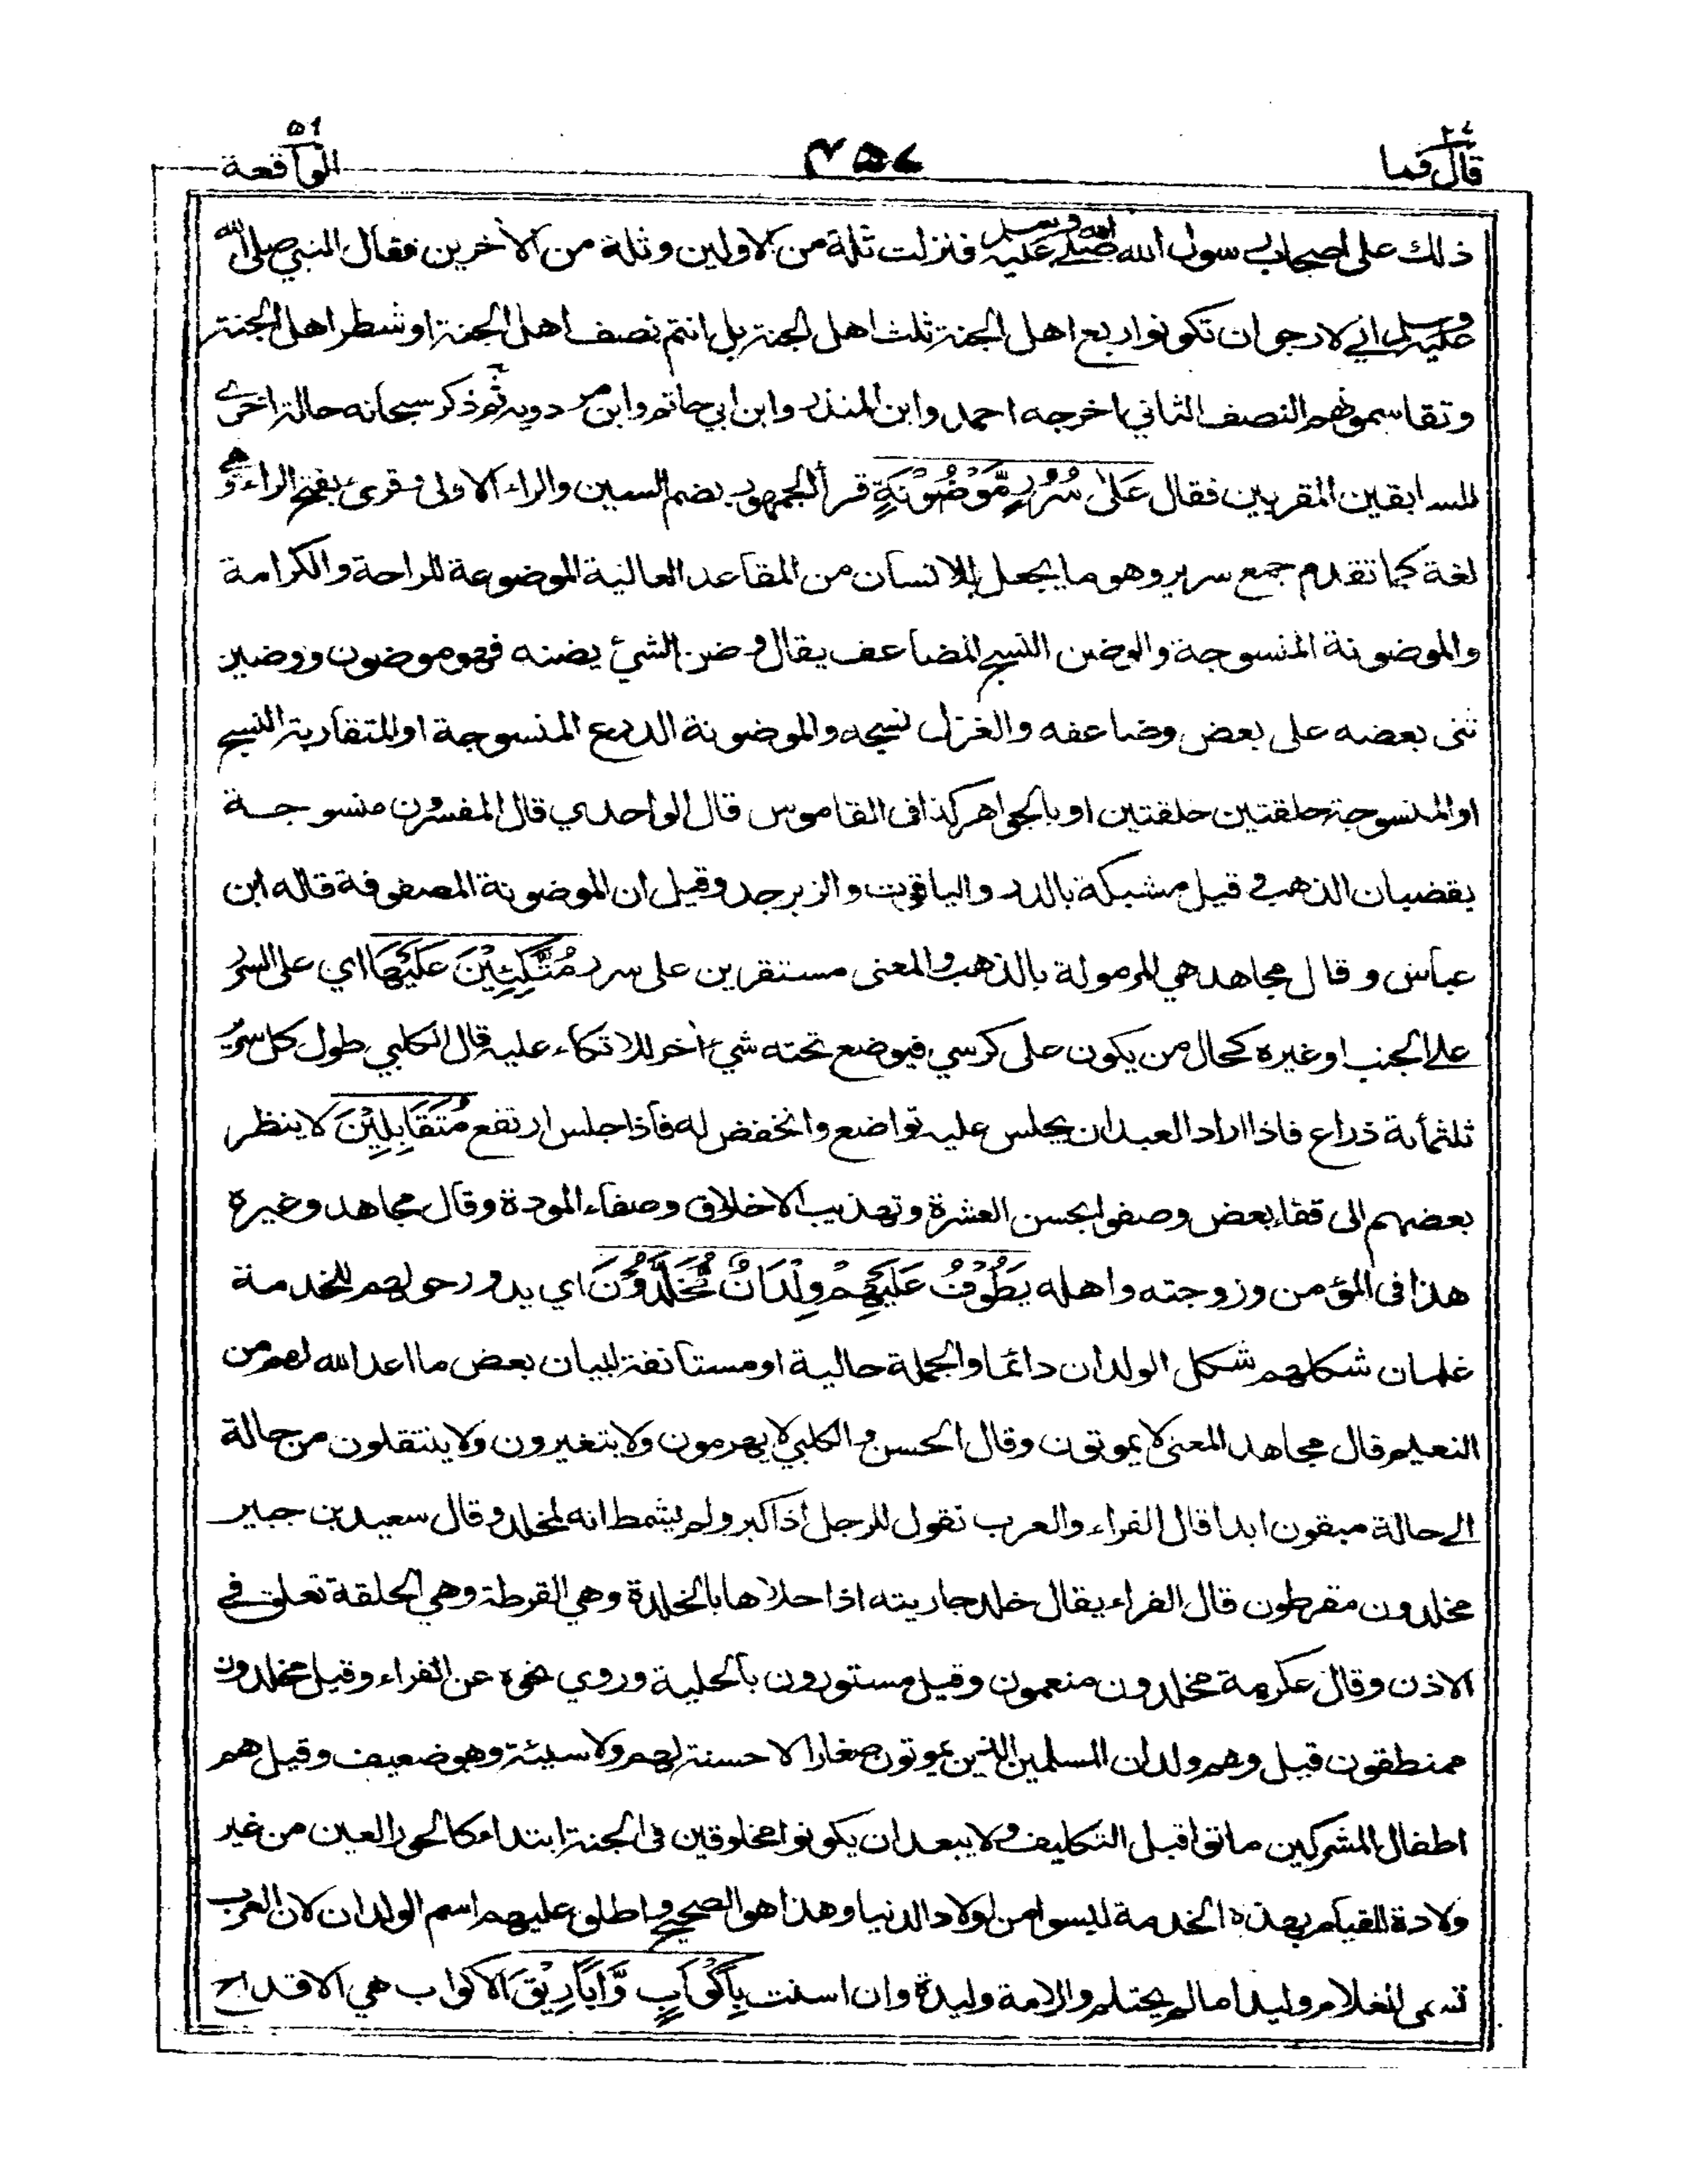 ٢٧ ٥٦
قال فما ٤٥٧ الواقعة
ذلك على اصحاب رسول الله صلى الله عليه وسلم فنزلت ثلة من الاولين وثلة من الاخرين فقال النبي صلى الله
عليه وسلم اني لارجو ان تكونوا ربع اهل الجنة ثلث اهل الجنة بل انتم نصف اهل الجنة او شطر اهل الجنة
وتقاسمونهم النصف الثاني اخرجه احمد وابن المنذر وابن ابي حاتم وابن مردويه ثم ذكر سبحانه حالة اخرى
للسابقين المقربين فقال عَلَىٰ سُرُرٍ مَّوْضُوْنَةٍ قرأ الجمهور بضم السين والراء الاولى وقرئ بفتح الراء وهي
لغة كما تقدم جمع سرير وهو ما يجعل للانسان من المقاعد العالية الموضوعة للراحة والكرامة
والموضونة المنسوجة والوضن النسج المضاعف يقال وضن الشيئ يضنه فهو موضون ووضين
ثنى بعضه على بعض وضاعفه والغزل نسجه والموضونة الدرع المنسوجة او المتقاربة النسج
او المنسوجة حلقتين حلقتين او بالجواهر كذا في القاموس قال الواحدي قال المفسرون منسوجة
بقضبان الذهب وقيل مشبكة بالدر والياقوت والزبرجد وقيل ان الموضونة المصفوفة قاله ابن
عباس وقال مجاهد هي المرمولة بالذهب والمعنى مستقرين على سرر مُتَّكِئِيْنَ عَلَيْهَا اي على السرر
على الجنب او غيره كحال من يكون على كرسي فيوضع تحته شيء اخر للاتكاء عليه قال الكلبي طول كل سرير
ثلثمأئة ذراع فاذا اراد العبد ان يجلس عليه تواضع وانخفض له فاذا جلس ارتفع مُتَقَابِلِيْنَ لا ينظر
بعضهم الى قفاء بعض وصفوا بحسن العشرة وتهذيب الاخلاق وصفاء المودة وقال مجاهد وغيره
هذا في المؤمن وزوجته واهله يَطُوْفُ عَلَيْهِمْ وِلْدَانٌ مُّخَلَّدُوْنَ اي يدور حولهم للخدمة
غلمان شكلهم شكل الولدان دائما والجملة حالية او مستأنفة لبيان بعض ما اعد الله لهم من
النعيم قال مجاهد المعنى لا يموتون وقال الحسن والكلبي لا يهرمون ولا يتغيرون ولا ينتقلون من حالة
الى حالة مبقون ابدا قال الفراء والعرب تقول للرجل اذا كبر ولم يشمط انه لمخلد وقال سعيد بن جبير
مخلدون مقرطون قال الفراء يقال خلد جاريته اذا حلاها بالخلدة وهي القرطة وهي الحلقة تعلق في
الاذن وقال عكرمة مخلدون منعمون وقيل مستورون بالحلية وروي نحوه عن الفراء وقيل مخلدون
ممنطقون قيل وهم ولدان المسلمين الذين يموتون صغارا لا حسنة لهم ولا سيئة وهو ضعيف وقيل هم
اطفال المشركين ماتوا قبل التكليف ولا يبعد ان يكونوا مخلوقين في الجنة ابتداء كالحور العين من غير
ولادة للقيام بهذه الخدمة ليسوا من اولاد الدنيا وهذا هو الصحيح واطلق عليهم اسم الولدان لان العرب
تسمى الغلام وليدا ما لم يحتلم والامة وليدة وان اسنت بِاَكْوَابٍ وَّاَبَارِيْقَ الاكواب هي الاقداح